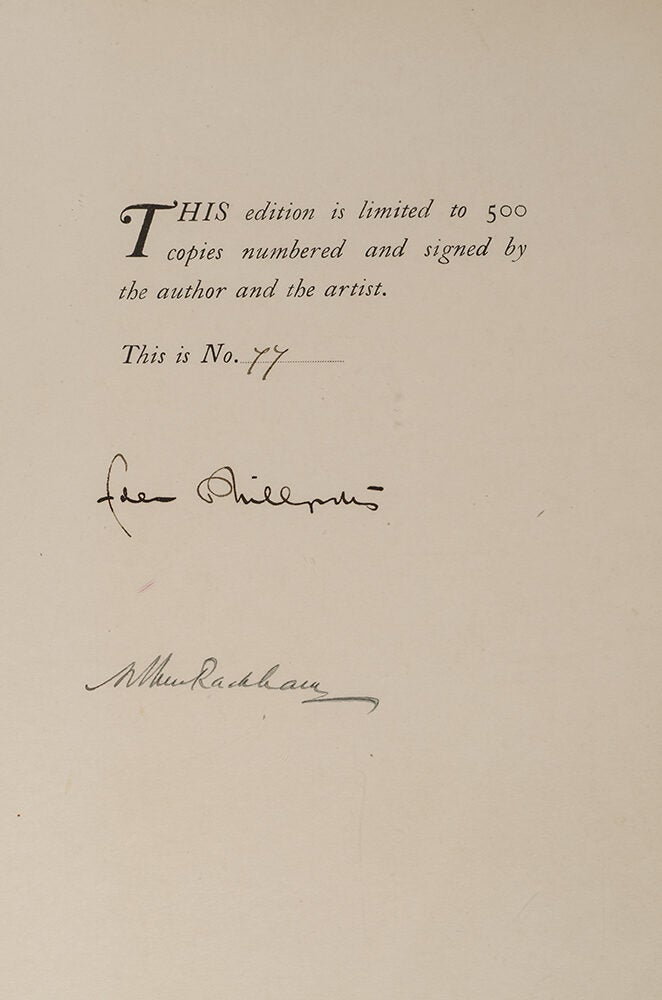 THIS edition is limited to 500
copies numbered and signed by
the author and the artist.
This is No. 77
Eden Phillpotts
Arthur Rackham